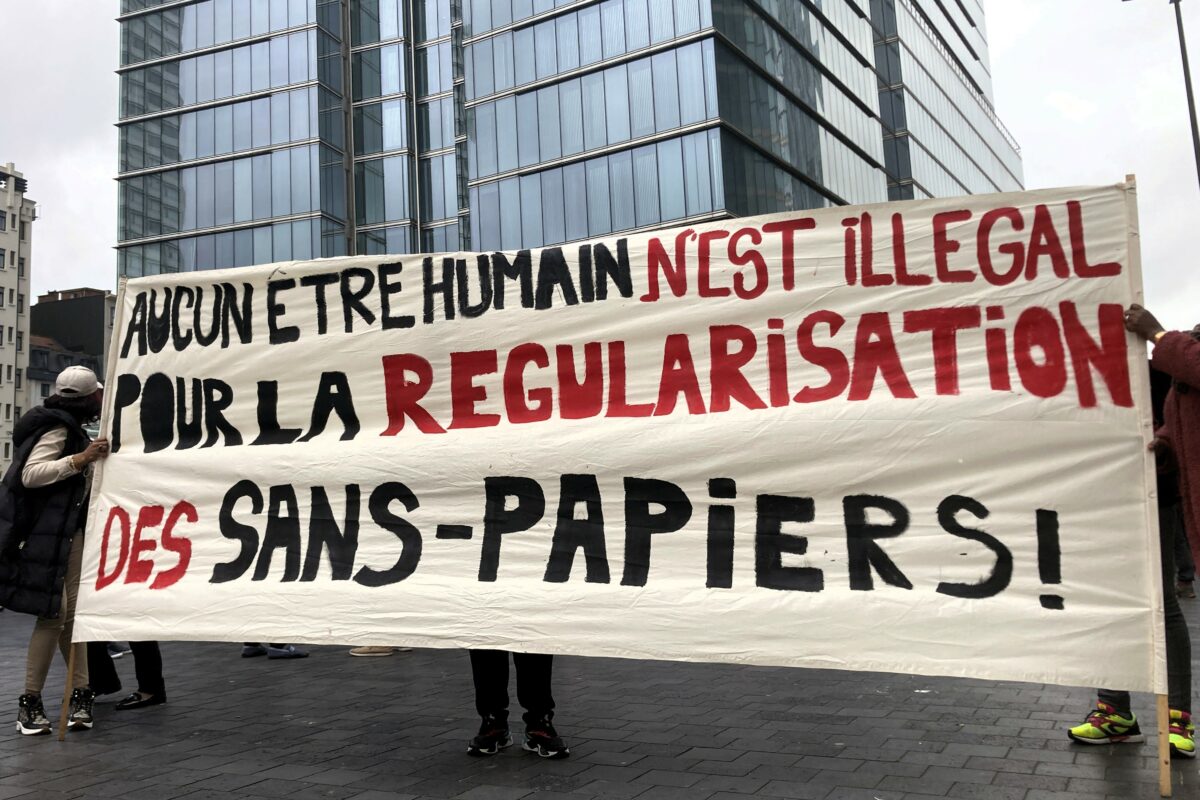 AUCUN ETRE HUMAIN N'EST iLLEGAL
POUR LA REGULARiSATiON
DES SANS-PAPiERS !